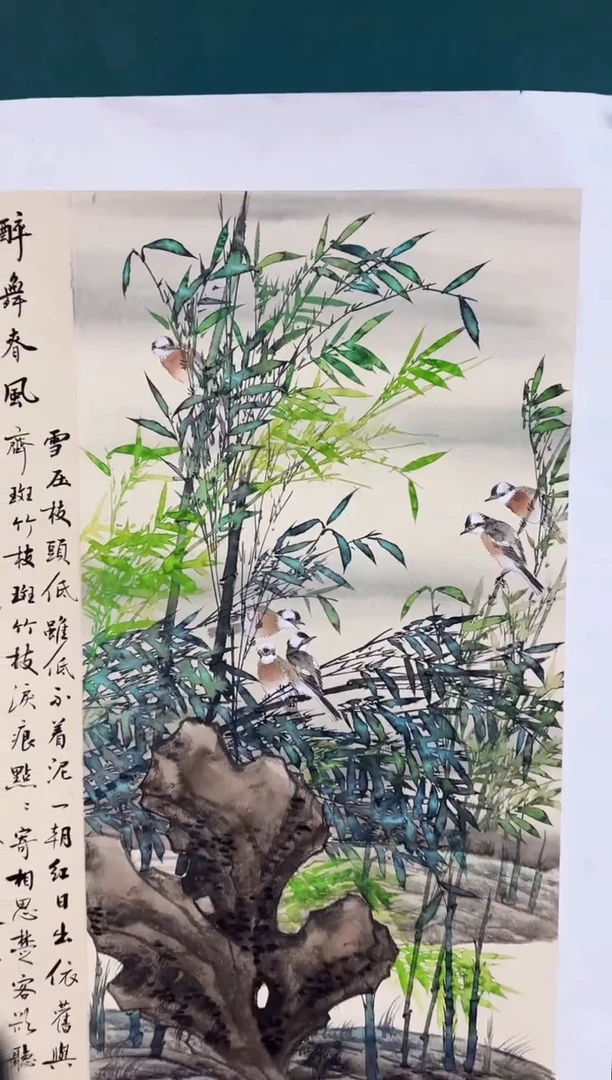 雪压枝頭低雖低不着泥一朝红日出依舊與
齊斑竹枝斑竹枝淚痕點〻寄相思楚客欲聽
醉舞春風